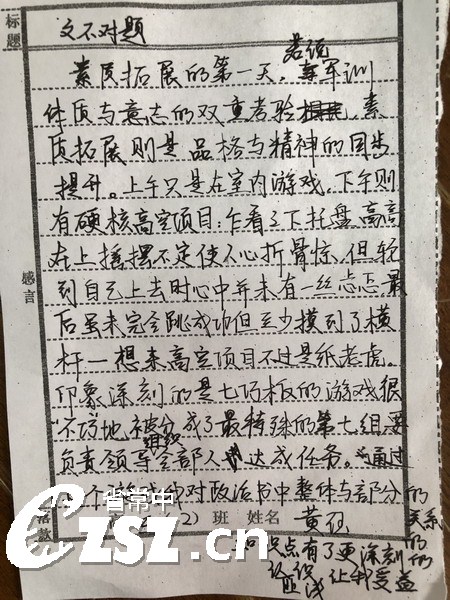 标题
文不对题
素质拓展的第一天。若说军训
体质与意志的双重考验，素
质拓展则是品格与精神的同步
提升。上午只是在室内游戏，下午则
有硬核高空项目：乍看之下托盘高高
在上摇摆不定使人心折骨惊，但轮
到自己上去时心中并未有一丝忐忑最
后虽未完全跳成功但至少摸到了横
杆一想来高空项目不过是纸老虎。
印象深刻的是七巧板的游戏很
"不巧地被分成了最特殊的第七组要
负责领导组织全部人达成任务。通过
个游戏我对政治书中整体与部分的
关系的
感言
落款
(2) 班 姓名
知识点有了更深刻的
让我受益
省常中
czsz.cn